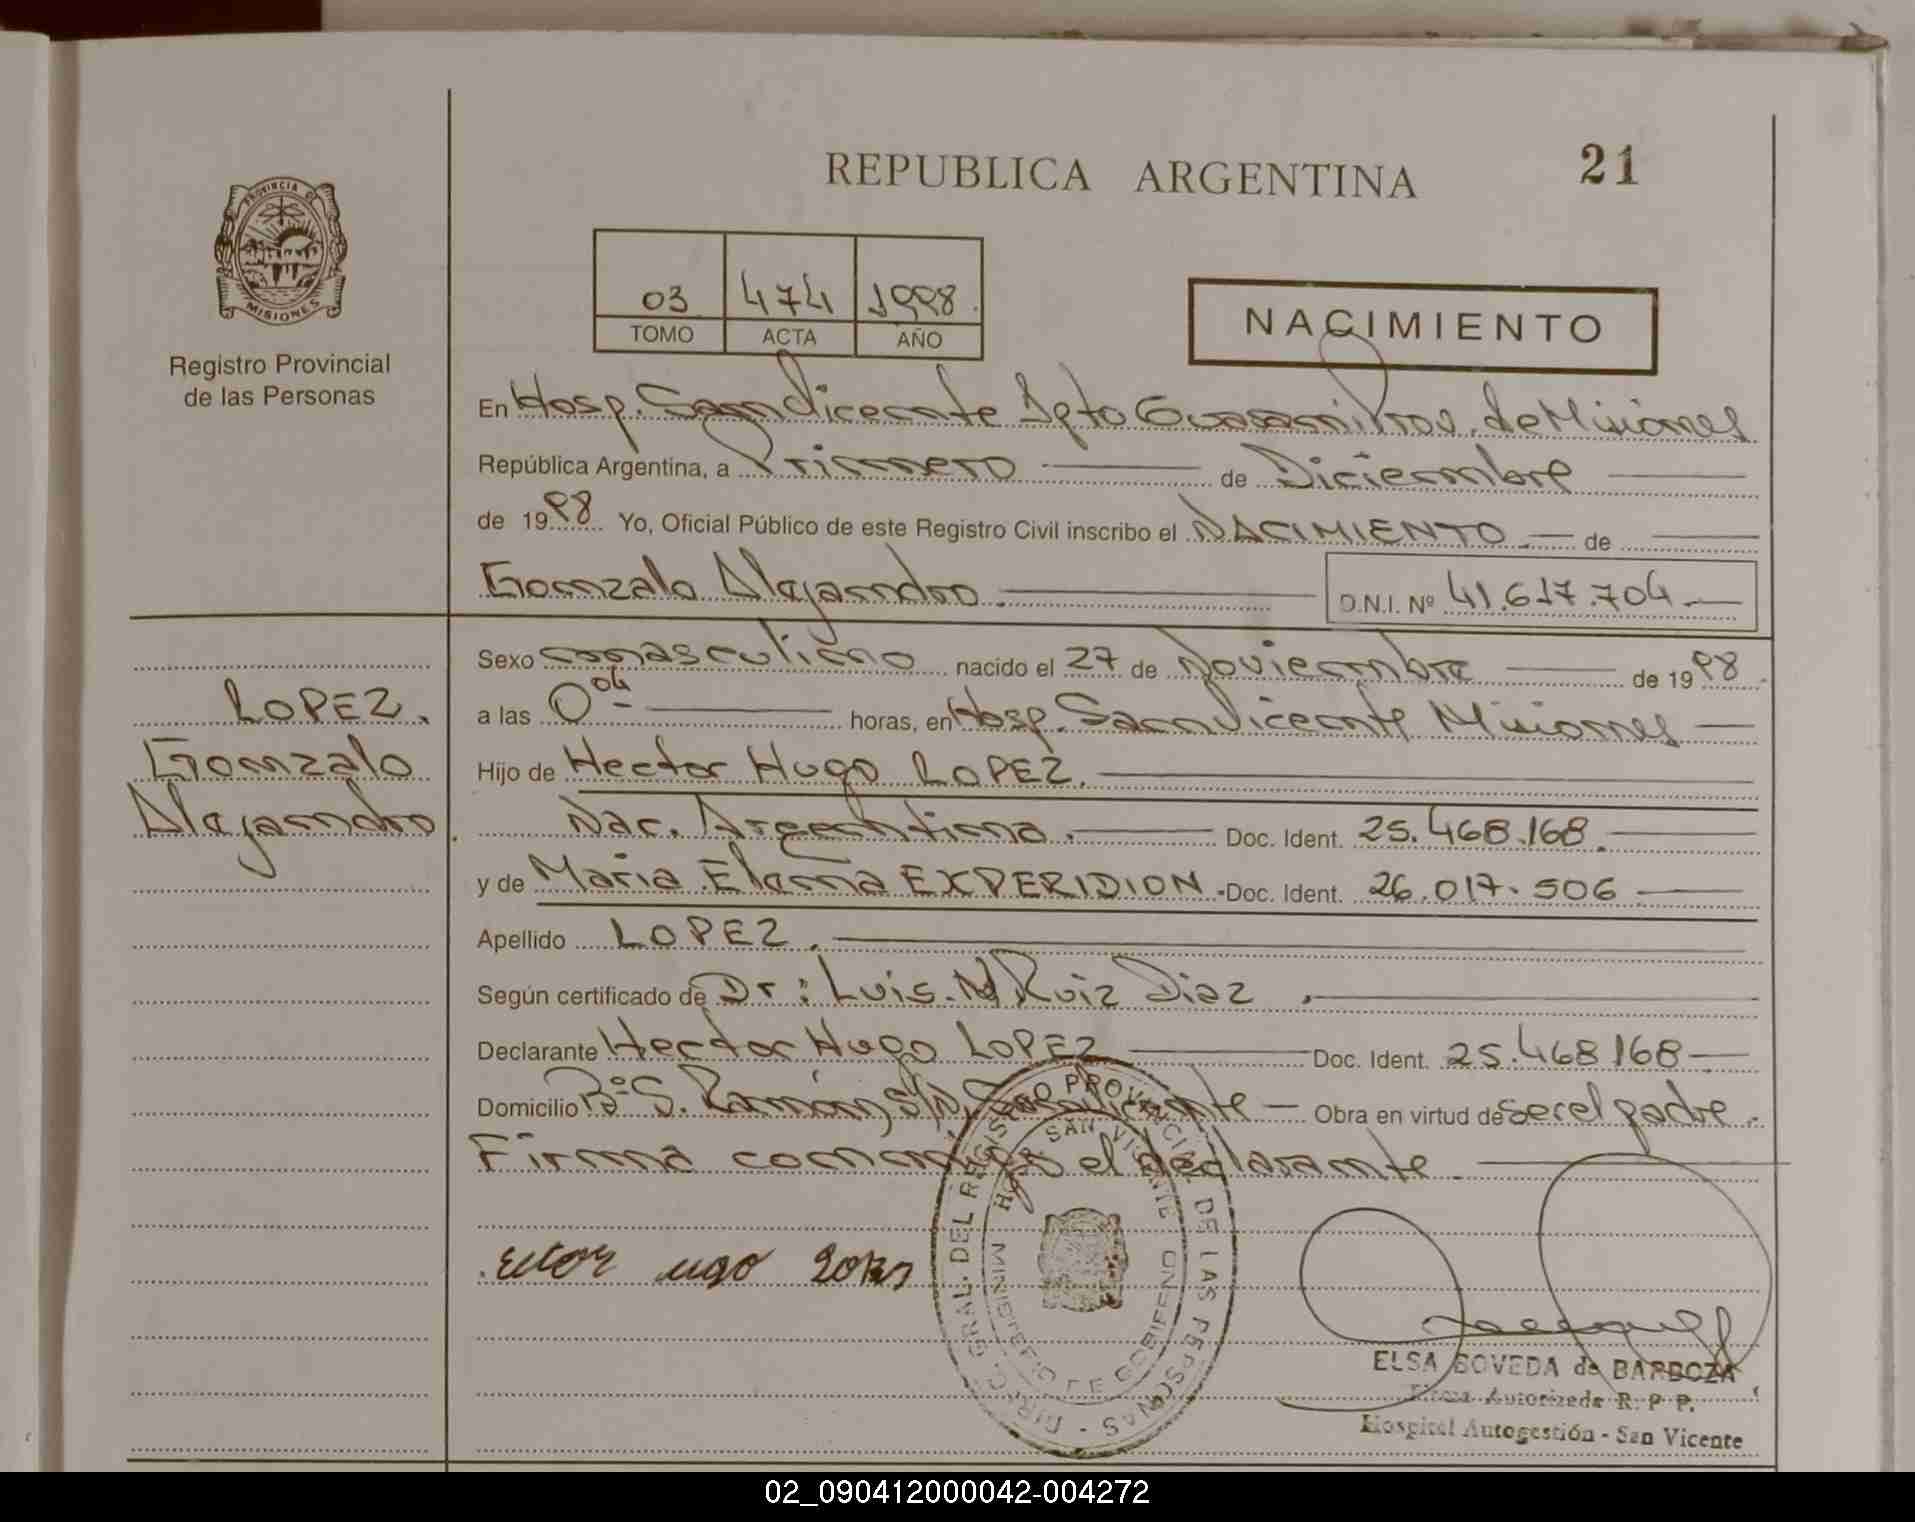 REPUBLICA ARGENTINA
21
PROVINCIA DE
MISIONES
Registro Provincial
de las Personas
03 474 1998
TOMO ACTA AÑO
NACIMIENTO
En Hosp. San Vicente Dpto Guarani Prov. de Misiones
República Argentina, a Primero de Diciembre
de 1998 Yo, Oficial Público de este Registro Civil inscribo el NACIMIENTO de
Gonzalo Alejandro. D.N.I. Nº 41.617.704
Sexo masculino nacido el 27 de Noviembre de 1998
a las 0 04 horas, en Hosp. San Vicente Misiones
Hijo de Hector Hugo LOPEZ.
Nac. Argentina. Doc. Ident. 25.468.168.
y de Maria Elena EXPERIDION. Doc. Ident. 26.017.506
Apellido LOPEZ.
Según certificado de Dr: Luis. Ruiz Diaz
Declarante Hector Hugo LOPEZ Doc. Ident. 25.468168
Domicilio Bº S. Ramón, s/n, San Vicente Obra en virtud de ser el padre.
Firma conmigo el declarante
LOPEZ.
Gonzalo
Alejandro.
DIRECC. GRAL. DEL REGISTRO PROVINCIAL DE LAS PERSONAS
HOSP. SAN VICENTE
MINISTERIO DE GOBIERNO
ELSA SOVEDA de BARBOZA
Firma Autorizada R. P. P.
Hospital Autogestión - San Vicente
02_090412000042-004272